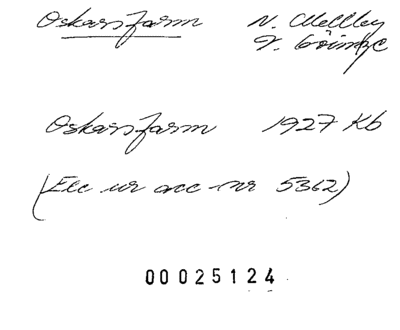 Oskarsfarm N. Mellby
V. Göinge
Oskarsfarm 1927 Kb
(Ecc ur acc-nr 5362)
00025124